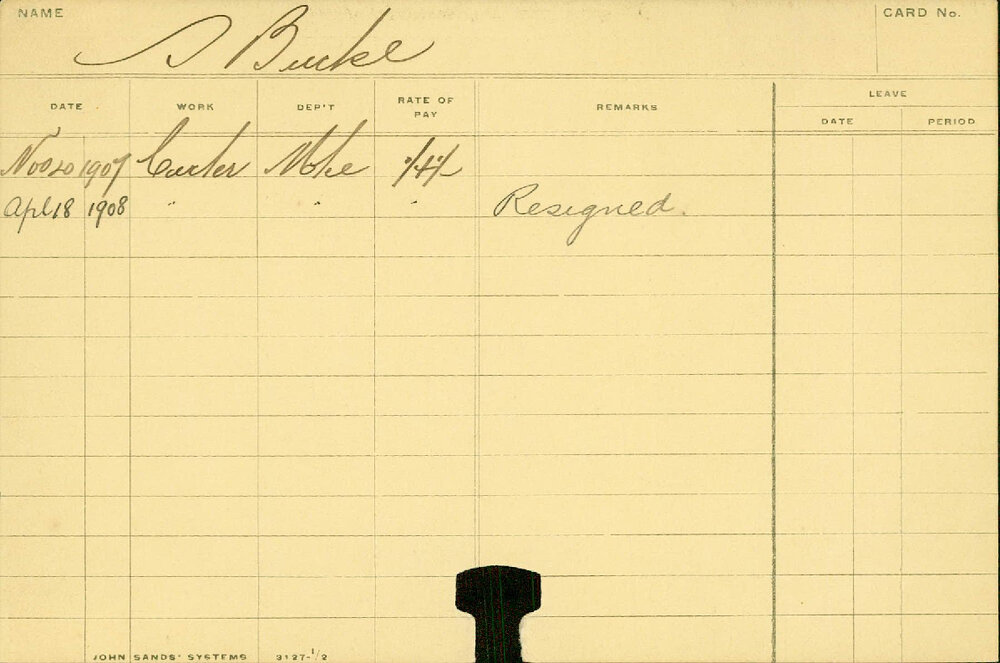 NAME S Buckle CARD No.
DATE WORK DEP'T RATE OF PAY REMARKS LEAVE
DATE PERIOD
Nov 20 1907 Carter
Apl 18 1908 " " " Resigned.
JOHN SANDS' SYSTEMS 3127-1/2